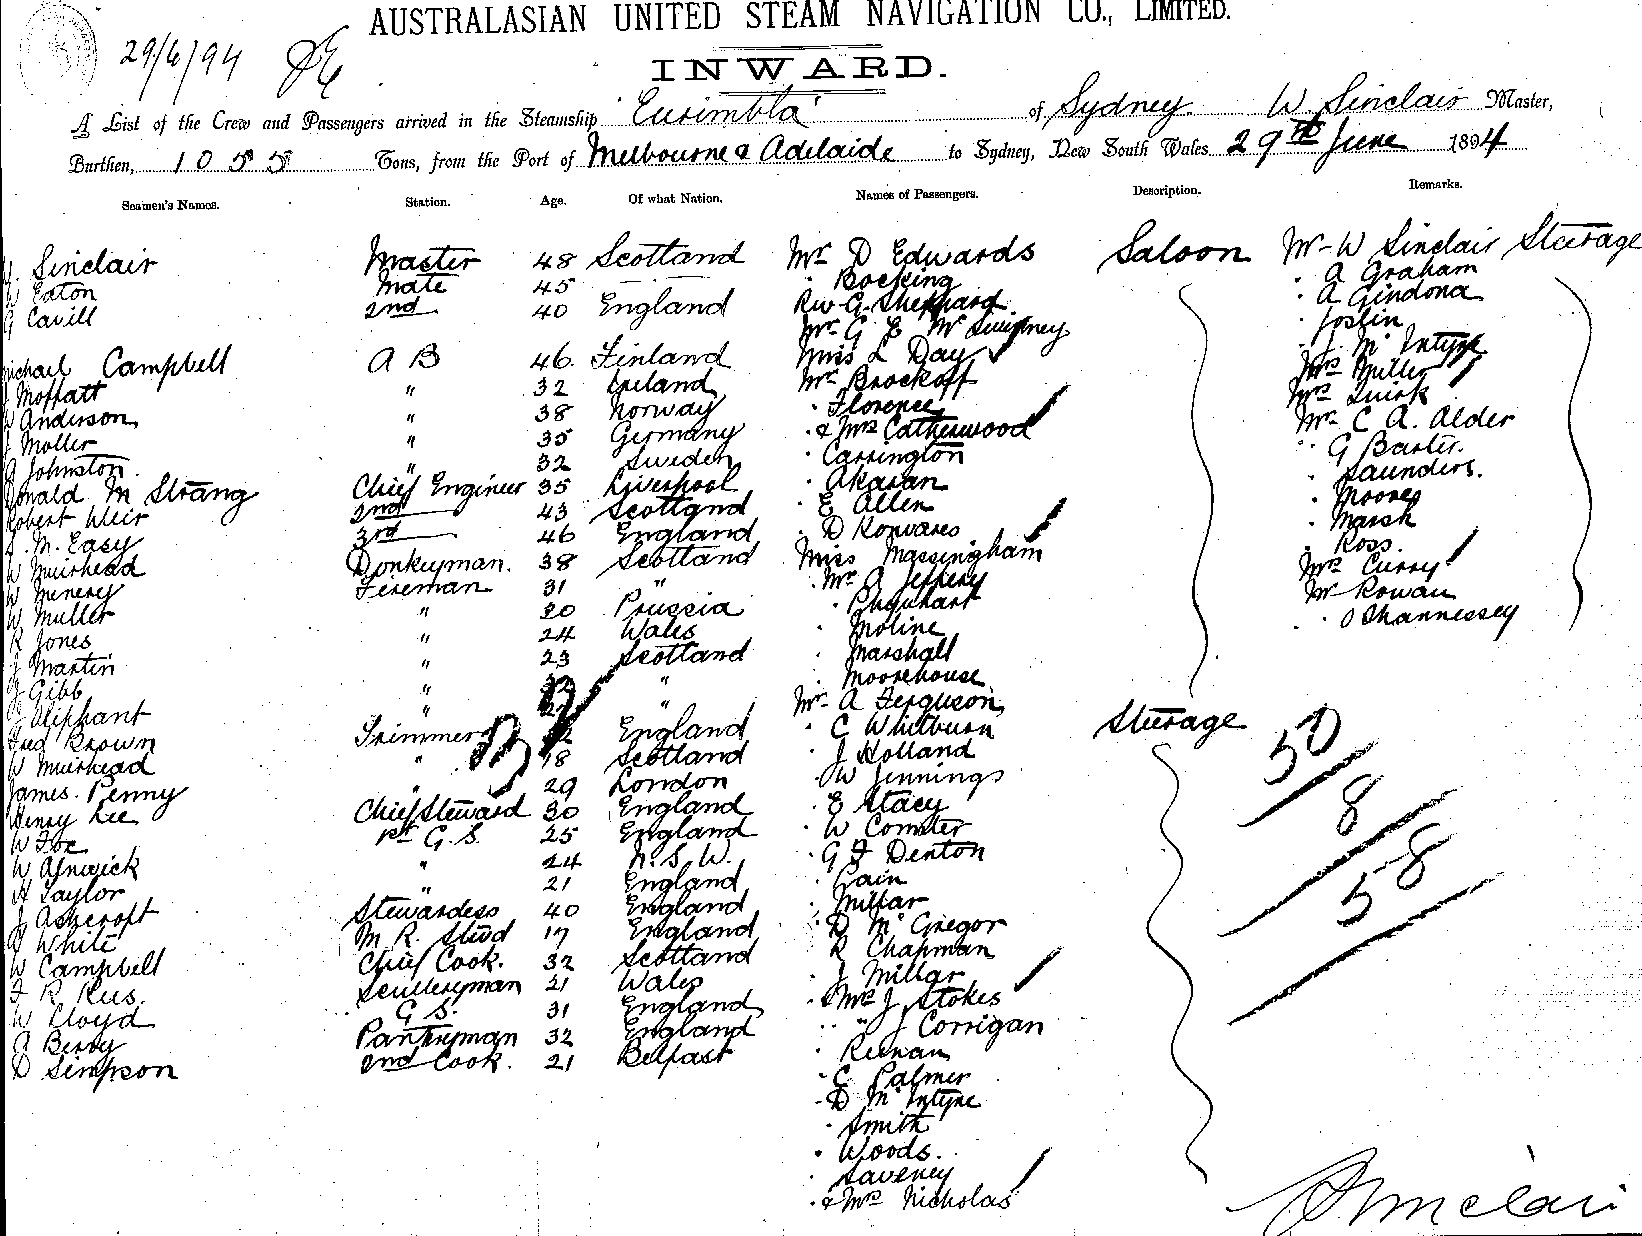 AUSTRALASIAN UNITED STEAM NAVIGATION CO., LIMITED.
29/6/94
INWARD.
A List of the Crew and Passengers arrived in the Steamship "Eurimbla" of Sydney W Sinclair Master,
Burthen, 1055 Tons, from the Port of Melbourne & Adelaide to Sydney, New South Wales 29th June 1894
Seamen's Names. Station. Age. Of what Nation. Names of Passengers. Description. Remarks.
Sinclair Master 48 Scotland
W Eaton Mate 45
G Cavill 2nd 40 England
Michael Campbell A B 46 Finland
J Moffatt " 32 Ireland
W Anderson " 38 Norway
J Moller " 35 Germany
A Johnston " 32 Sweden
Donald M Strang Chief Engineer 35 Liverpool
Robert Weir 2nd 43 Scotland
J. M. Easy 3rd 46 England
W Muirhead Donkeyman. 38 Scotland
W Menery Fireman 31 "
W Muller " 30 Prussia
R Jones " 24 Wales
J Martin " 23 Scotland
J Gibb " "
Oliphant " "
Fred Brown Trimmer England
W Muirhead " 18 Scotland
James Penny " 29 London
Henry Lee Chief Steward 30 England
W Fox Pr G. S. 25 England
W Alnwick " 24 N. S. W.
H Taylor " 21 England
J Ashcroft Stewardess 40 England
White M R. Stwd 17 England
W Campbell Chief Cook. 32 Scotland
F R Rus. Sculleryman 21 Wales
W Lloyd G S. 31 England
A Berry Pantryman 32 England
D Simpson 2nd Cook. 21 Belfast
Mr D Edwards Saloon
" Bocking
Rev G. Sheppard
Mr G E McSwinney
Miss L Day
Mr Brockoff
" Florence
" & Mrs Catherwood
" Carrington
" Akaran
" E Allen
" D Konvares
Miss Massingham
Mr A Jeffery
" Urquhart
" Moline
" Marshall
" Moorehouse
Mr A Ferguson Steerage
" C Whitburn
" J Holland
" W Jennings
" E Stacy
" W Comster
" G F Denton
" Cain
" Millar
" D McGregor
" R Chapman
" J Millar
" & Mrs J Stokes
" " J Corrigan
" Keenan
" C Palmer
" D McIntyre
" Smith
" Woods.
" Saveney
" & Mrs Nicholas
Mr W Sinclair Steerage
" A Graham
" A Gindona
" Joslin
" J. McIntyre
Mrs Miller
Mrs Quirk
Mr C A. Alder
" G Baxter.
" Saunders.
" Moores
" Marsh
" Ross.
Mrs Curry
Mr Rowan
" O Shannessey
50
8
58
W Sinclair